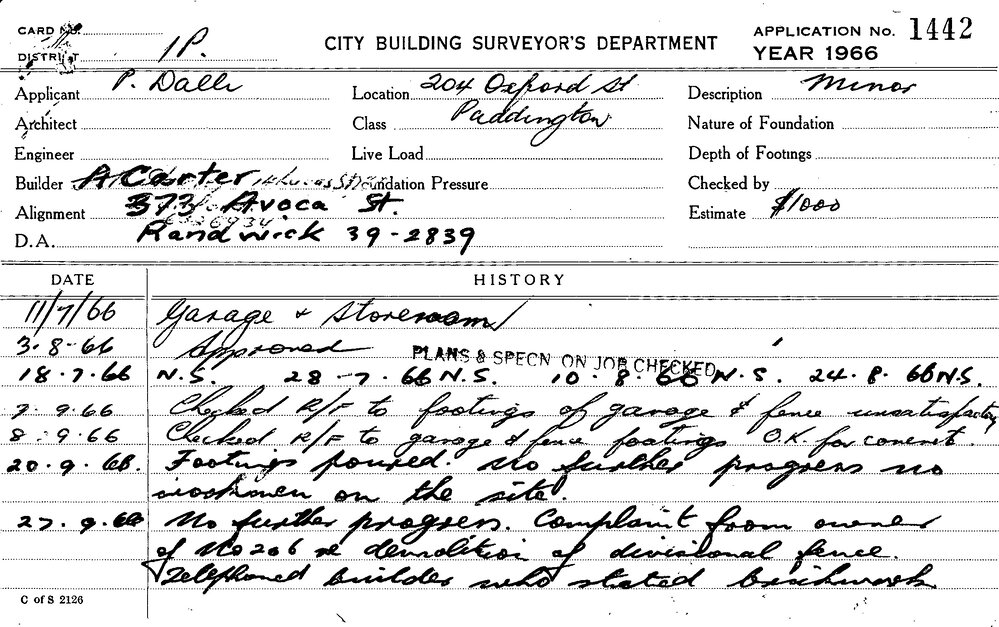 CARD No.
DISTRICT 1P.
CITY BUILDING SURVEYOR'S DEPARTMENT
APPLICATION No. 1442
YEAR 1966
Applicant P. Dalli
Location 204 Oxford St
Description Minor
Architect
Class Paddington
Nature of Foundation
Engineer
Live Load
Depth of Footings
Builder A Carter
Foundation Pressure
Checked by
Alignment 373 Avoca St.
Estimate $1000
D.A. Randwick 39-2839
DATE HISTORY
11/7/66 Garage & Storeroom
3.8.66 Approved PLANS & SPECN ON JOB CHECKED
18.7.66 N.S. 28-7.66 N.S. 10.8.66 N.S. 24.8.66 N.S.
7.9.66 Checked R/F to footings of garage & fence unsatisfactory
8.9.66 Checked R/F to garage & fence footings O.K. for concret.
20.9.66. Footings poured. No further progress no
workmen on the site.
27.9.66 No further progress. Complaint from owner
of No 206 re demolition of divisional fence.
Telephoned builder who stated brickwork
C of S 2126